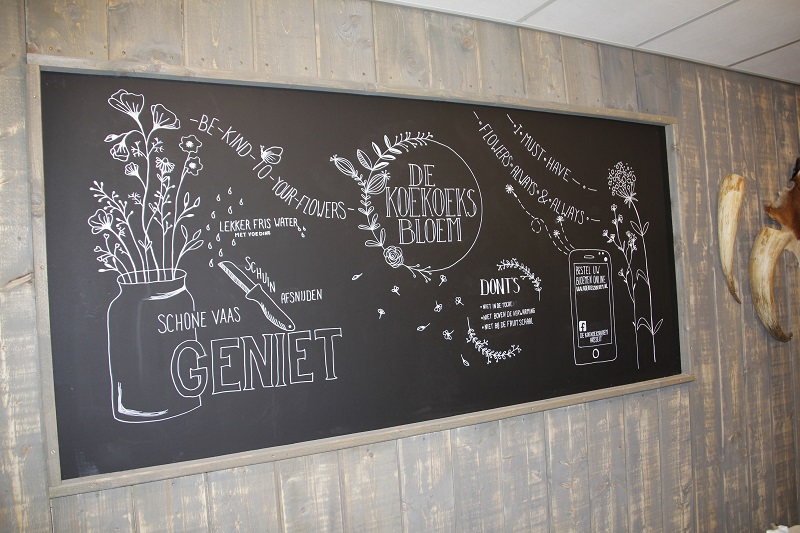 -BE-KIND-TO-YOUR-FLOWERS-
LEKKER FRIS WATER
MET VOEDING
SCHUIN
AFSNIJDEN
SCHONE VAAS
GENIET
DE
KOEKOEKS
BLOEM
DON'TS
• NIET IN DE
• NIET BOVEN DE VERWARMING
• NIET BIJ DE FRUITSCHAAL
I-MUST-HAVE
FLOWERS-ALWAYS-&-ALWAYS
BESTEL UW
BLOEMEN ONLINE
f
DE KOEKOEKSBLOEM